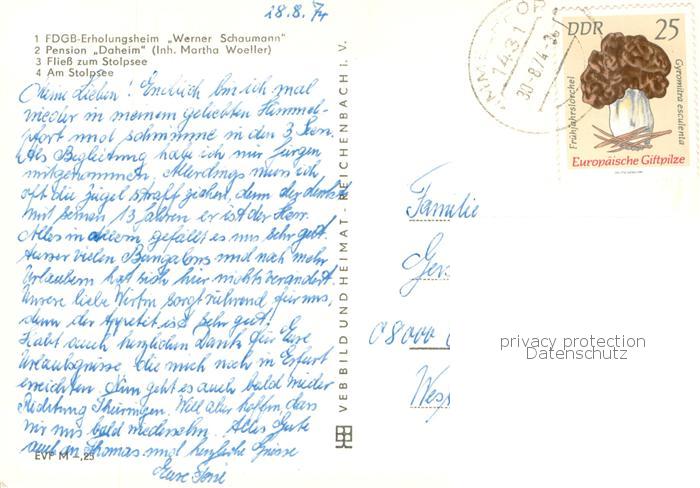 28.8.74
1 FDGB-Erholungsheim „Werner Schaumann"
2 Pension „Daheim" (Inh. Martha Woeller)
3 Fließ zum Stolpsee
4 Am Stolpsee
Meine Lieben! Endlich bin ich mal
wieder in meinem geliebten Himmel-
pfort und schwimme in den 3 Seen.
Als Begleitung habe ich mir Jürgen
mitgenommen. Allerdings muß ich
oft die Zügel straff ziehen, denn der denkt
mit seinen 13 Jahren er ist der Herr.
Alles in allem, gefällt es uns sehr gut.
Ausser vielen Bungalows und noch mehr
Urlaubern hat sich hier nichts verändert.
Unsere liebe Wirtin sorgt rührend für uns,
denn der Appetit ist sehr gut.
Habt auch herzlichen Dank für Eure
Urlaubsgrüsse, die mich noch in Erfurt
erreichten. Nun geht es auch bald wieder
Richtung Thüringen. Will aber hoffen, dass
wir uns bald wiedersehn. Alles Gute
auch an Thomas und herzliche Grüsse
Eure
EVP M -,25
VEB BILD UND HEIMAT - REICHENBACH I. V.
1431
30.8.74
DDR 25
Frühjahrslorchel
Gyromitra esculenta
Europäische Giftpilze
Familie
Ger
privacy protection
Datenschutz